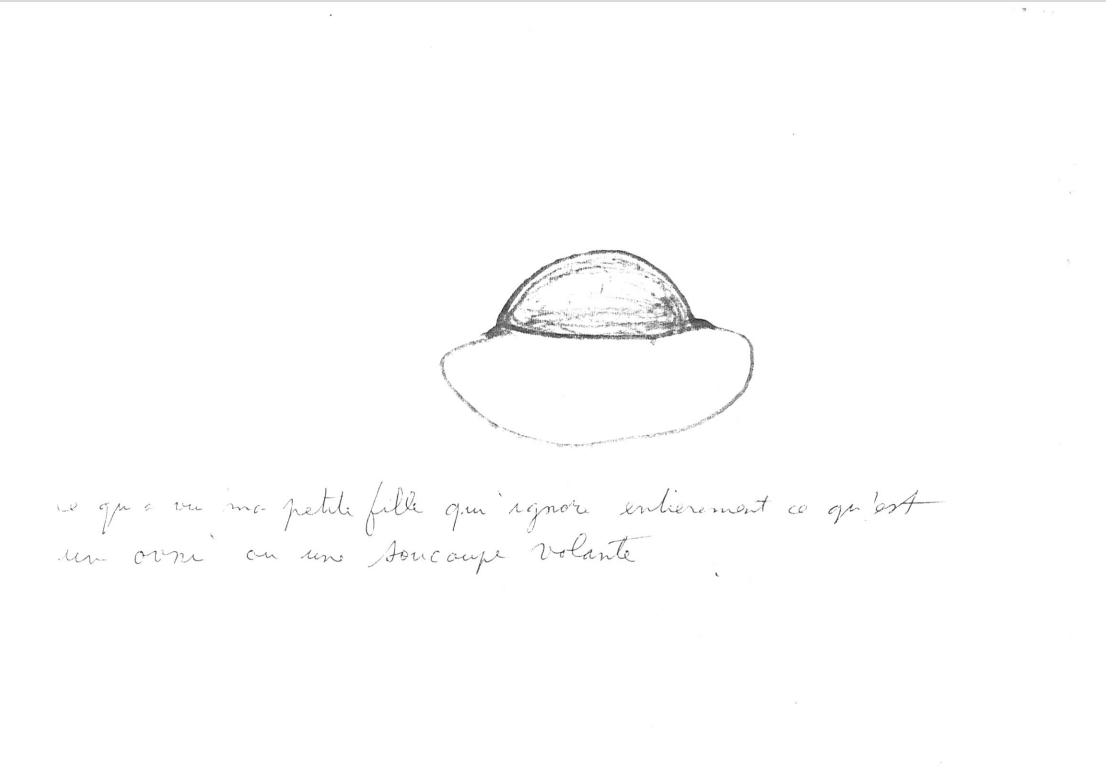 ce qu a vu ma petite fille qui ignore entierement ce qu'est
un ovni ou une soucoupe volante